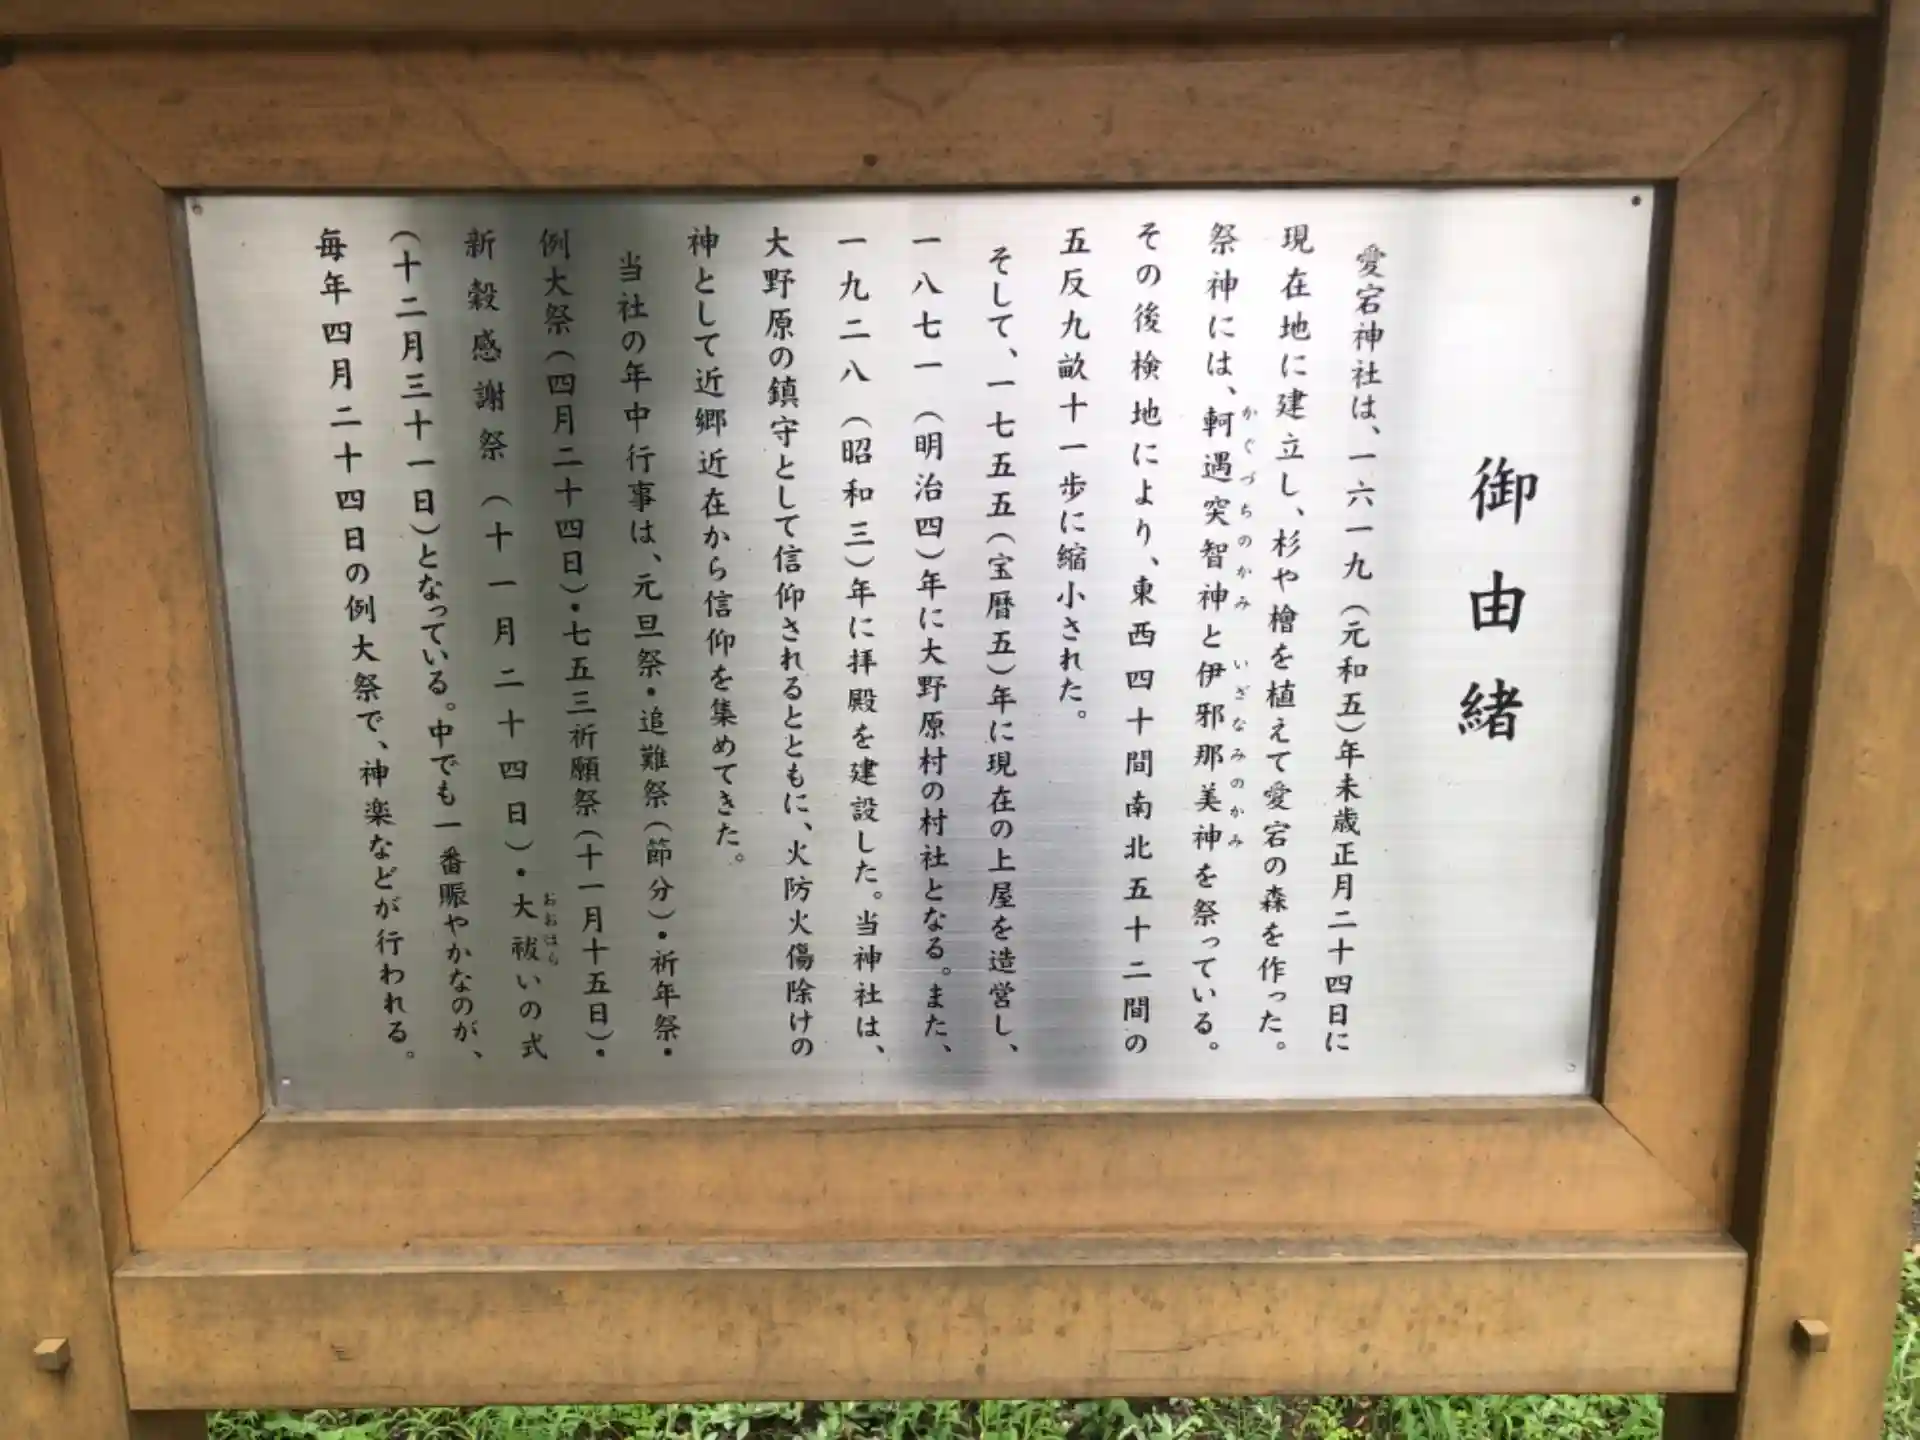 御由緒
愛宕神社は、一六一九（元和五）年未歳正月二十四日に
現在地に建立し、杉や檜を植えて愛宕の森を作った。
祭神には、軻遇突智神と伊邪那美神を祭っている。
かぐづちのかみ いざなみのかみ
その後検地により、東西四十間南北五十二間の
五反九畝十一歩に縮小された。
そして、一七五五（宝暦五）年に現在の上屋を造営し、
一八七一（明治四）年に大野原村の村社となる。また、
一九二八（昭和三）年に拝殿を建設した。当神社は、
大野原の鎮守として信仰されるとともに、火防火傷除けの
神として近郷近在から信仰を集めてきた。
当社の年中行事は、元旦祭・追難祭（節分）・祈年祭・
例大祭（四月二十四日）・七五三祈願祭（十一月十五日）・
新穀感謝祭（十一月二十四日）・大祓いの式
おおはら
（十二月三十一日）となっている。中でも一番賑やかなのが、
毎年四月二十四日の例大祭で、神楽などが行われる。